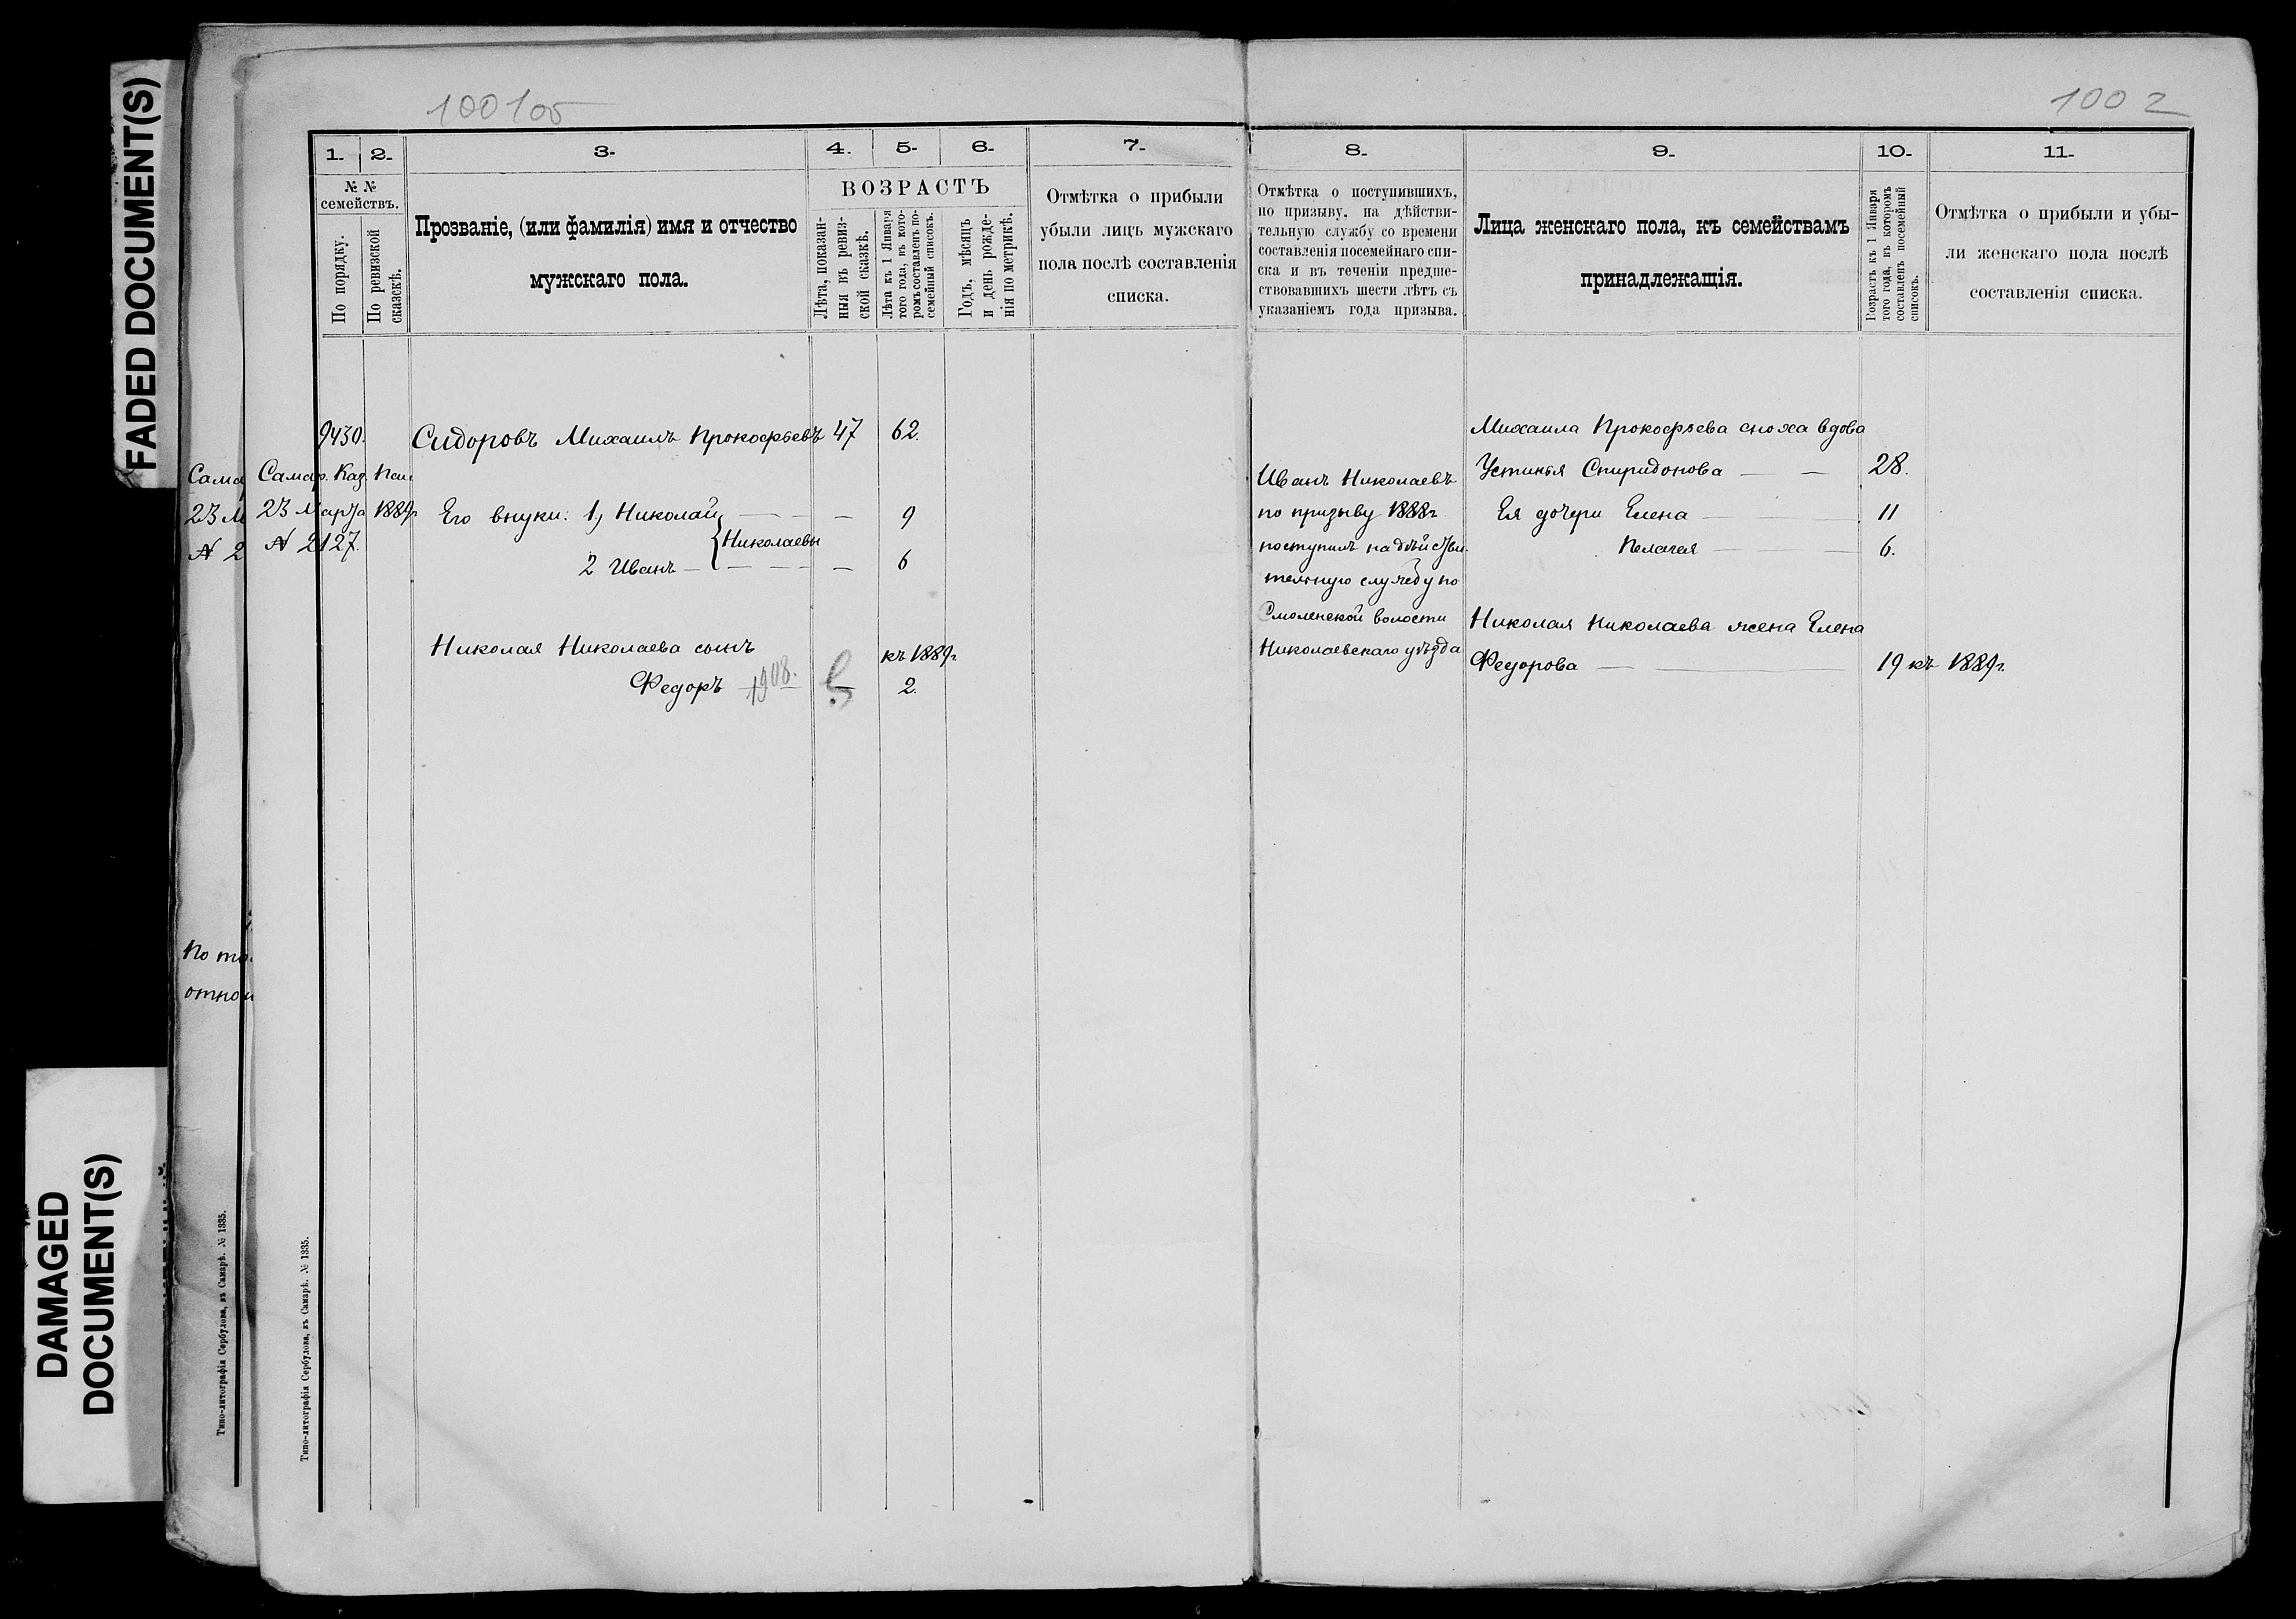 FADED DOCUMENT(S)
DAMAGED
DOCUMENT(S)
100105
1002
1. 2. 3. 4. 5. 6. 7.
№ №
семействъ.
По порядку.
По ревизской
сказскѣ.
Прозваніе, (или фамилія) имя и отчество
мужскаго пола.
ВОЗРАСТЪ
Лѣта, показан-
ныя въ ревиз-
ской сказкѣ.
Лѣта къ 1 Января
того года, въ кото-
ромъ составленъ по-
семейный списокъ.
Годъ, мѣсяцъ
и день рожде-
нія по метрикѣ.
Отмѣтка о прибыли
убыли лицъ мужскаго
пола послѣ составленія
списка.
9430. Сидоровъ Михаилъ Прокофьевъ 47 62.
Самар. Каз.
23 Марта 1889г
№ 2127.
Его внуки: 1, Николай — — 9
Николаевы
2 Иванъ — — — 6
Николая Николаева сынъ къ 1889г
Федоръ 1908. 2.
По
Типо-литографія Сербулова, въ Самарѣ. № 1335.
Типо-литографія Сербулова, въ Самарѣ. № 1335.
8. 9. 10. 11.
Отмѣтка о поступившихъ,
по призыву, на дѣйстви-
тельную службу со времени
составленія посемейнаго спи-
ска и въ теченіи предше-
ствовавшихъ шести лѣтъ съ
указаніемъ года призыва.
Лица женскаго пола, къ семействамъ
принадлежащія.
Возрастъ къ 1 Января
того года, въ которомъ
составленъ посемейный
списокъ.
Отмѣтка о прибыли и убы-
ли женскаго пола послѣ
составленія списка.
Иванъ Николаевъ
по призыву 1888г
поступилъ на дѣйстви-
тельную службу по
Смоленской волости
Николаевскаго уѣзда
Михаила Прокофьева сноха вдова
Устинья Спиридонова — — 28.
Ея дочери Елена — 11
Пелагея — 6.
Николая Николаева жена Елена
Федорова — 19 къ 1889г.